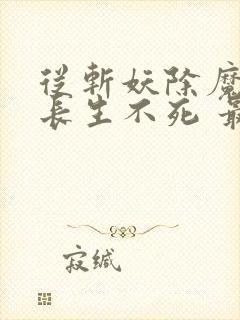 從斬妖除魔
長生不死 最
寂缄